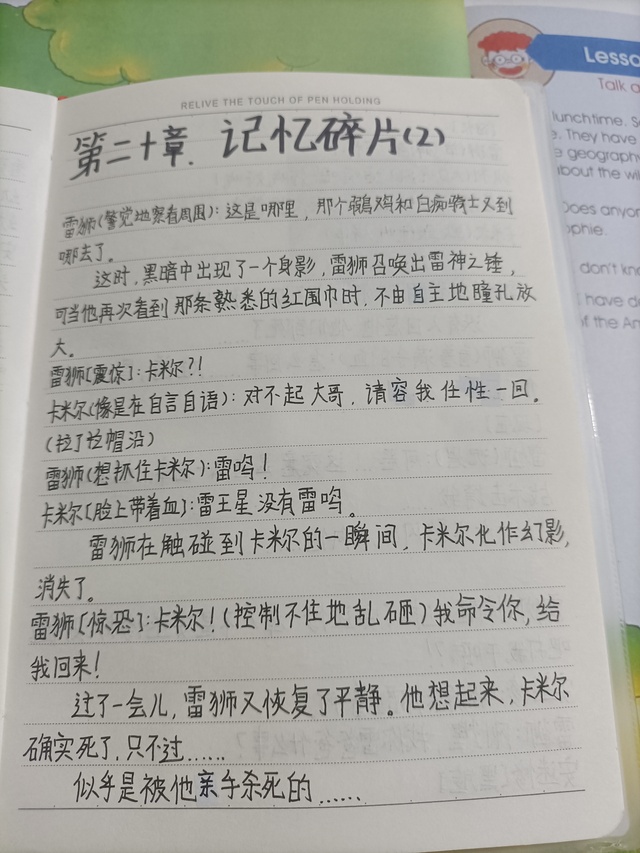 Lesso
Talk a
lunchtime. S
e. They have
e geography
about the wil
Does anyon
ophie.
don't kno
I have do
of the An
RELIVE THE TOUCH OF PEN HOLDING
第二十章. 记忆碎片(2)
雷狮(警觉地察看周围): 这是哪里，那个弱鸡和白痴骑士又到
哪去了。
这时, 黑暗中出现了一个身影, 雷狮召唤出雷神之锤,
可当他再次看到那条熟悉的红围巾时, 不由自主地瞳孔放
大。
雷狮[震惊]: 卡米尔?!
卡米尔(像是在自言自语): 对不起大哥, 请容我任性一回。
(拉了拉帽沿)
雷狮(想抓住卡米尔): 雷鸣!
卡米尔[脸上带着血]: 雷王星没有雷鸣。
雷狮在触碰到卡米尔的一瞬间, 卡米尔化作幻影,
消失了。
雷狮[惊恐]: 卡米尔! (控制不住地乱砸) 我命令你, 给
我回来!
过了一会儿, 雷狮又恢复了平静。他想起来, 卡米尔
确实死了, 只不过......
似乎是被他亲手杀死的......